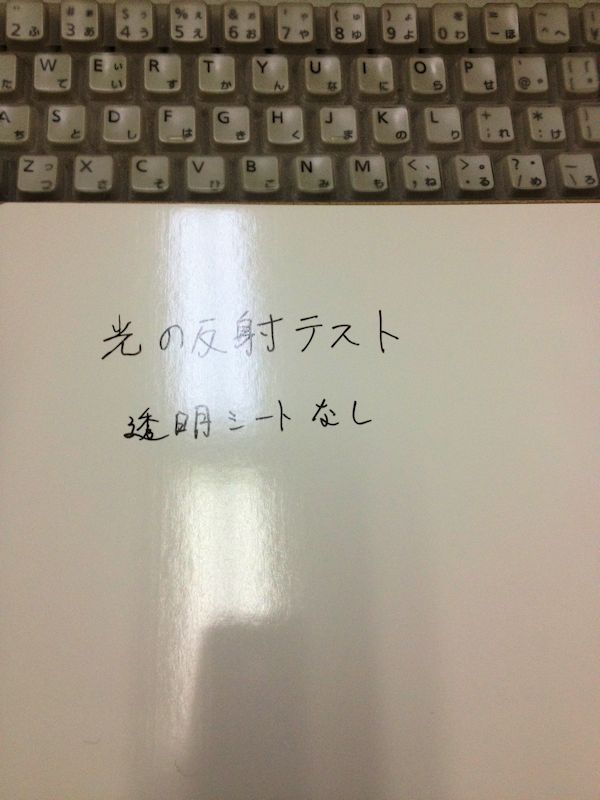 " 2 ふ # 3 あ ぁ $ 4 う ぅ % 5 え ぇ & 6 お ぉ ' 7 や ゃ ( 8 ゆ ゅ ) 9 よ ょ 0 わ を = - ほ ~ ^ へ
た W て E い ぃ R す T か Y ん U な I に O ら P せ ` @ ゛ { [
A ち S と D し F は G き H く J ま K の L り + ; れ * : け
Z つ っ X さ C そ V ひ B こ N み M も < , ね 、 > . る 。 ? / め ・ _ \ ろ
光の反射テスト
透明シートなし